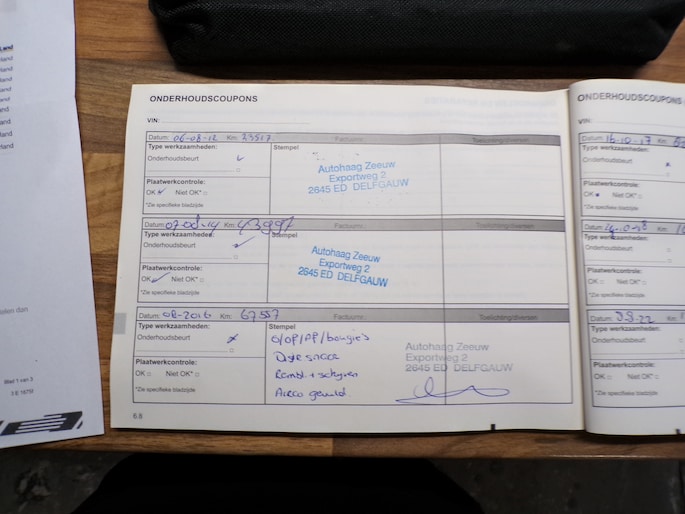 Land
ONDERHOUDSCOUPONS
VIN:
Datum: 06-08-12 Km: 23517 Factuurnr.: Toelichting/diversen
Type werkzaamheden: Stempel
Onderhoudsbeurt
Autohaag Zeeuw
Exportweg 2
2645 ED DELFGAUW
Plaatwerkcontrole:
OK Niet OK*
*Zie specifieke bladzijde
Datum: 07-08-14 Km: 43997 Factuurnr.: Toelichting/diversen
Type werkzaamheden: Stempel
Onderhoudsbeurt
Autohaag Zeeuw
Exportweg 2
2645 ED DELFGAUW
Plaatwerkcontrole:
OK Niet OK*
*Zie specifieke bladzijde
Datum: 08-2016 Km: 67557 Factuurnr.: Toelichting/diversen
Type werkzaamheden: Stempel
Onderhoudsbeurt
O/OP/PP/bougies
Rembl + schijven
Airco gevuld
Autohaag Zeeuw
Exportweg 2
2645 ED DELFGAUW
Plaatwerkcontrole:
OK Niet OK*
*Zie specifieke bladzijde
6.8
ONDERHOUDSCOUPONS
VIN:
Datum: 16-10-17 Km:
Type werkzaamheden:
Onderhoudsbeurt
Plaatwerkcontrole:
OK Niet OK*
*Zie specifieke bladzijde
Datum: Km:
Type werkzaamheden:
Onderhoudsbeurt
Plaatwerkcontrole:
OK Niet OK*
*Zie specifieke bladzijde
Datum: Km:
Type werkzaamheden:
Onderhoudsbeurt
Plaatwerkcontrole:
OK Niet OK*
*Zie specifieke bladzijde
Blad 1 van 3